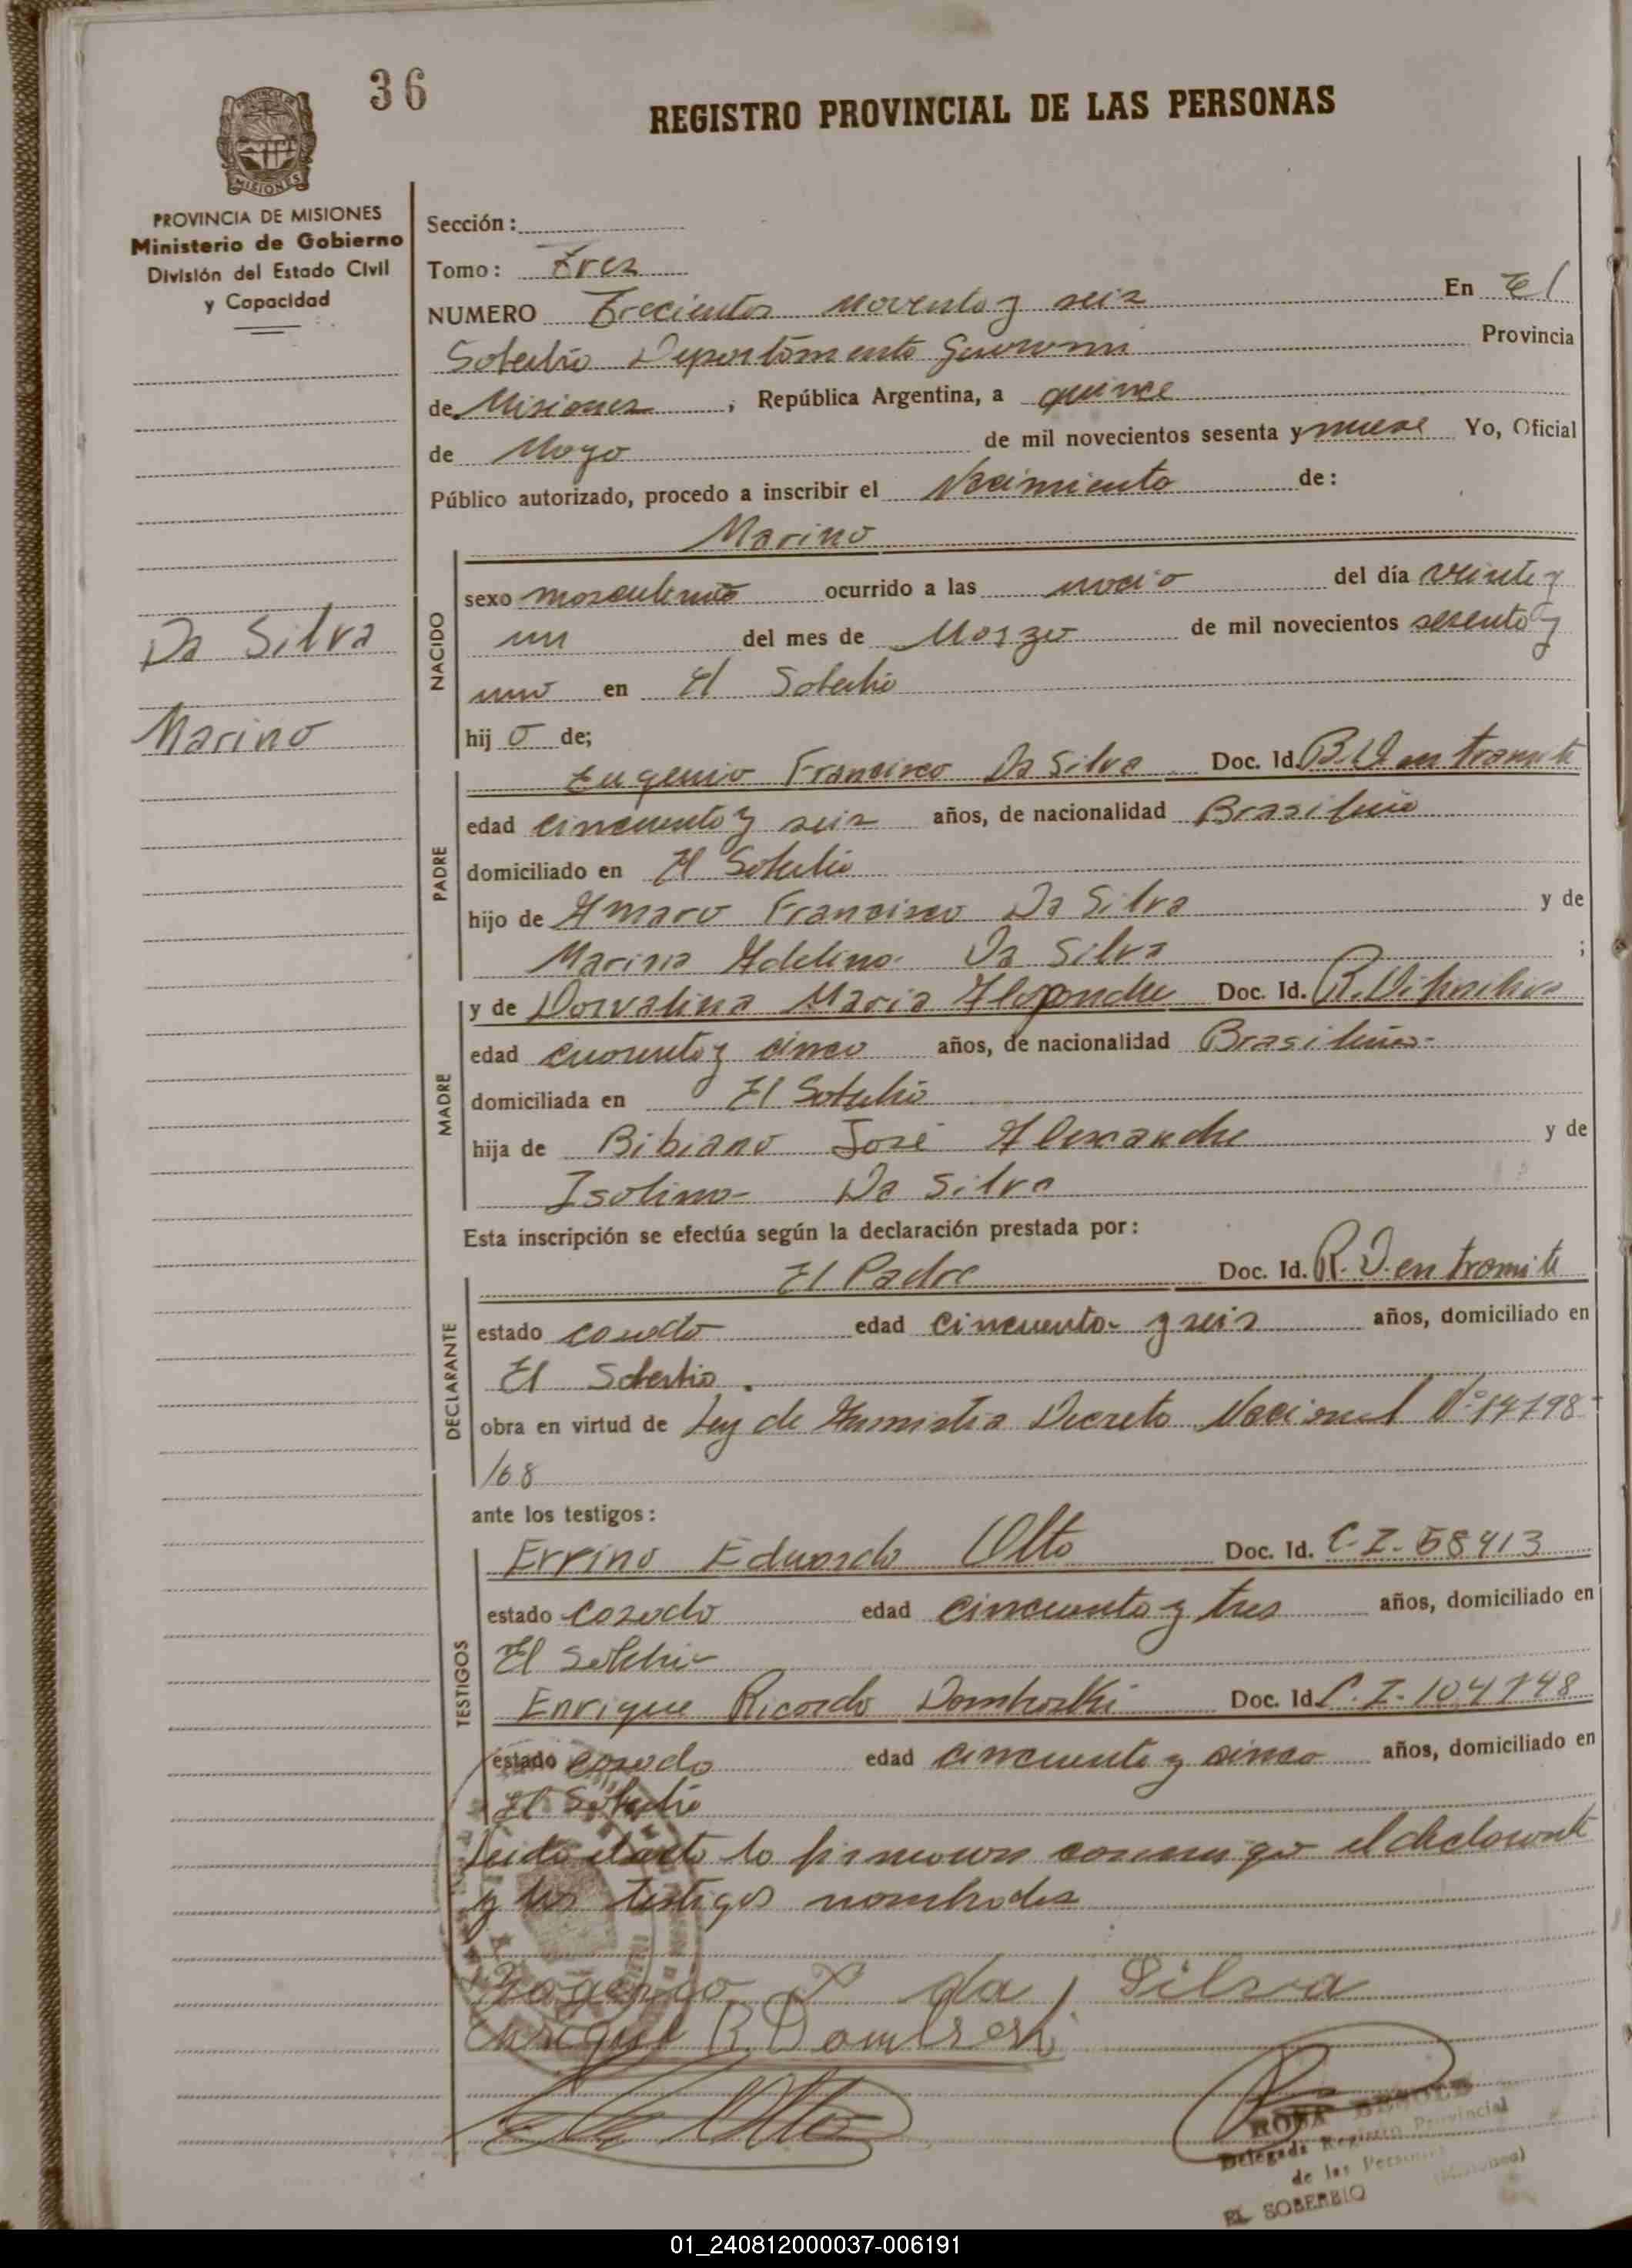 36
REGISTRO PROVINCIAL DE LAS PERSONAS
PROVINCIA DE MISIONES
MISIONES
PROVINCIA DE MISIONES
Ministerio de Gobierno
División del Estado Civil
y Capacidad
Da Silva
Marino
Sección:
Tomo: Tres
NUMERO Trecientos noventa y seis En El
Soberbio Departamento Guarani Provincia
de Misiones, República Argentina, a quince
de Mayo de mil novecientos sesenta y nueve Yo, Oficial
Público autorizado, procedo a inscribir el Nacimiento de:
Marino
NACIDO
sexo masculino ocurrido a las del día veinte y
un del mes de Marzo de mil novecientos sesenta y
uno en El Soberbio
hijo de;
PADRE
Eugenio Francisco Da Silva Doc. Id. en tramite
edad cincuenta y seis años, de nacionalidad Brasileño
domiciliado en El Soberbio
hijo de Amaro Francisco Da Silva y de
Adelina Da Silva ;
MADRE
y de Dorvalina Maria Doc. Id.
edad cuarenta y cinco años, de nacionalidad Brasileña
domiciliada en El Soberbio
hija de Bibiano José Alexandre y de
Isolina Da Silva
Esta inscripción se efectúa según la declaración prestada por:
DECLARANTE
El Padre Doc. Id. R.D. en tramite
estado casado edad cincuenta y seis años, domiciliado en
El Soberbio.
obra en virtud de Ley de Amnistia Decreto Nacional Nº
/68
ante los testigos:
TESTIGOS
Errino Eduardo Otto Doc. Id. C.I. 58413
estado casado edad cincuenta y tres años, domiciliado en
El Soberbio
Enrique Ricardo Domborski Doc. Id. C.I.
estado casado edad cincuenta y cinco años, domiciliado en
El Soberbio
Leida el acta la firmaron conmigo el declarante
y los testigos nombrados
da Silva
Enrique R.
ROSA
Delegada Registro Provincial
de las Personas
(Misiones)
EL SOBERBIO
01_240812000037-006191